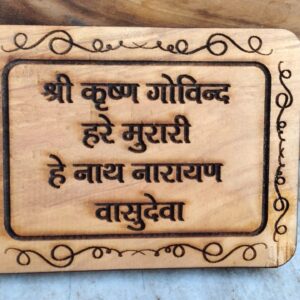 श्री कृष्ण गोविन्द
हरे मुरारी
हे नाथ नारायण
वासुदेवा